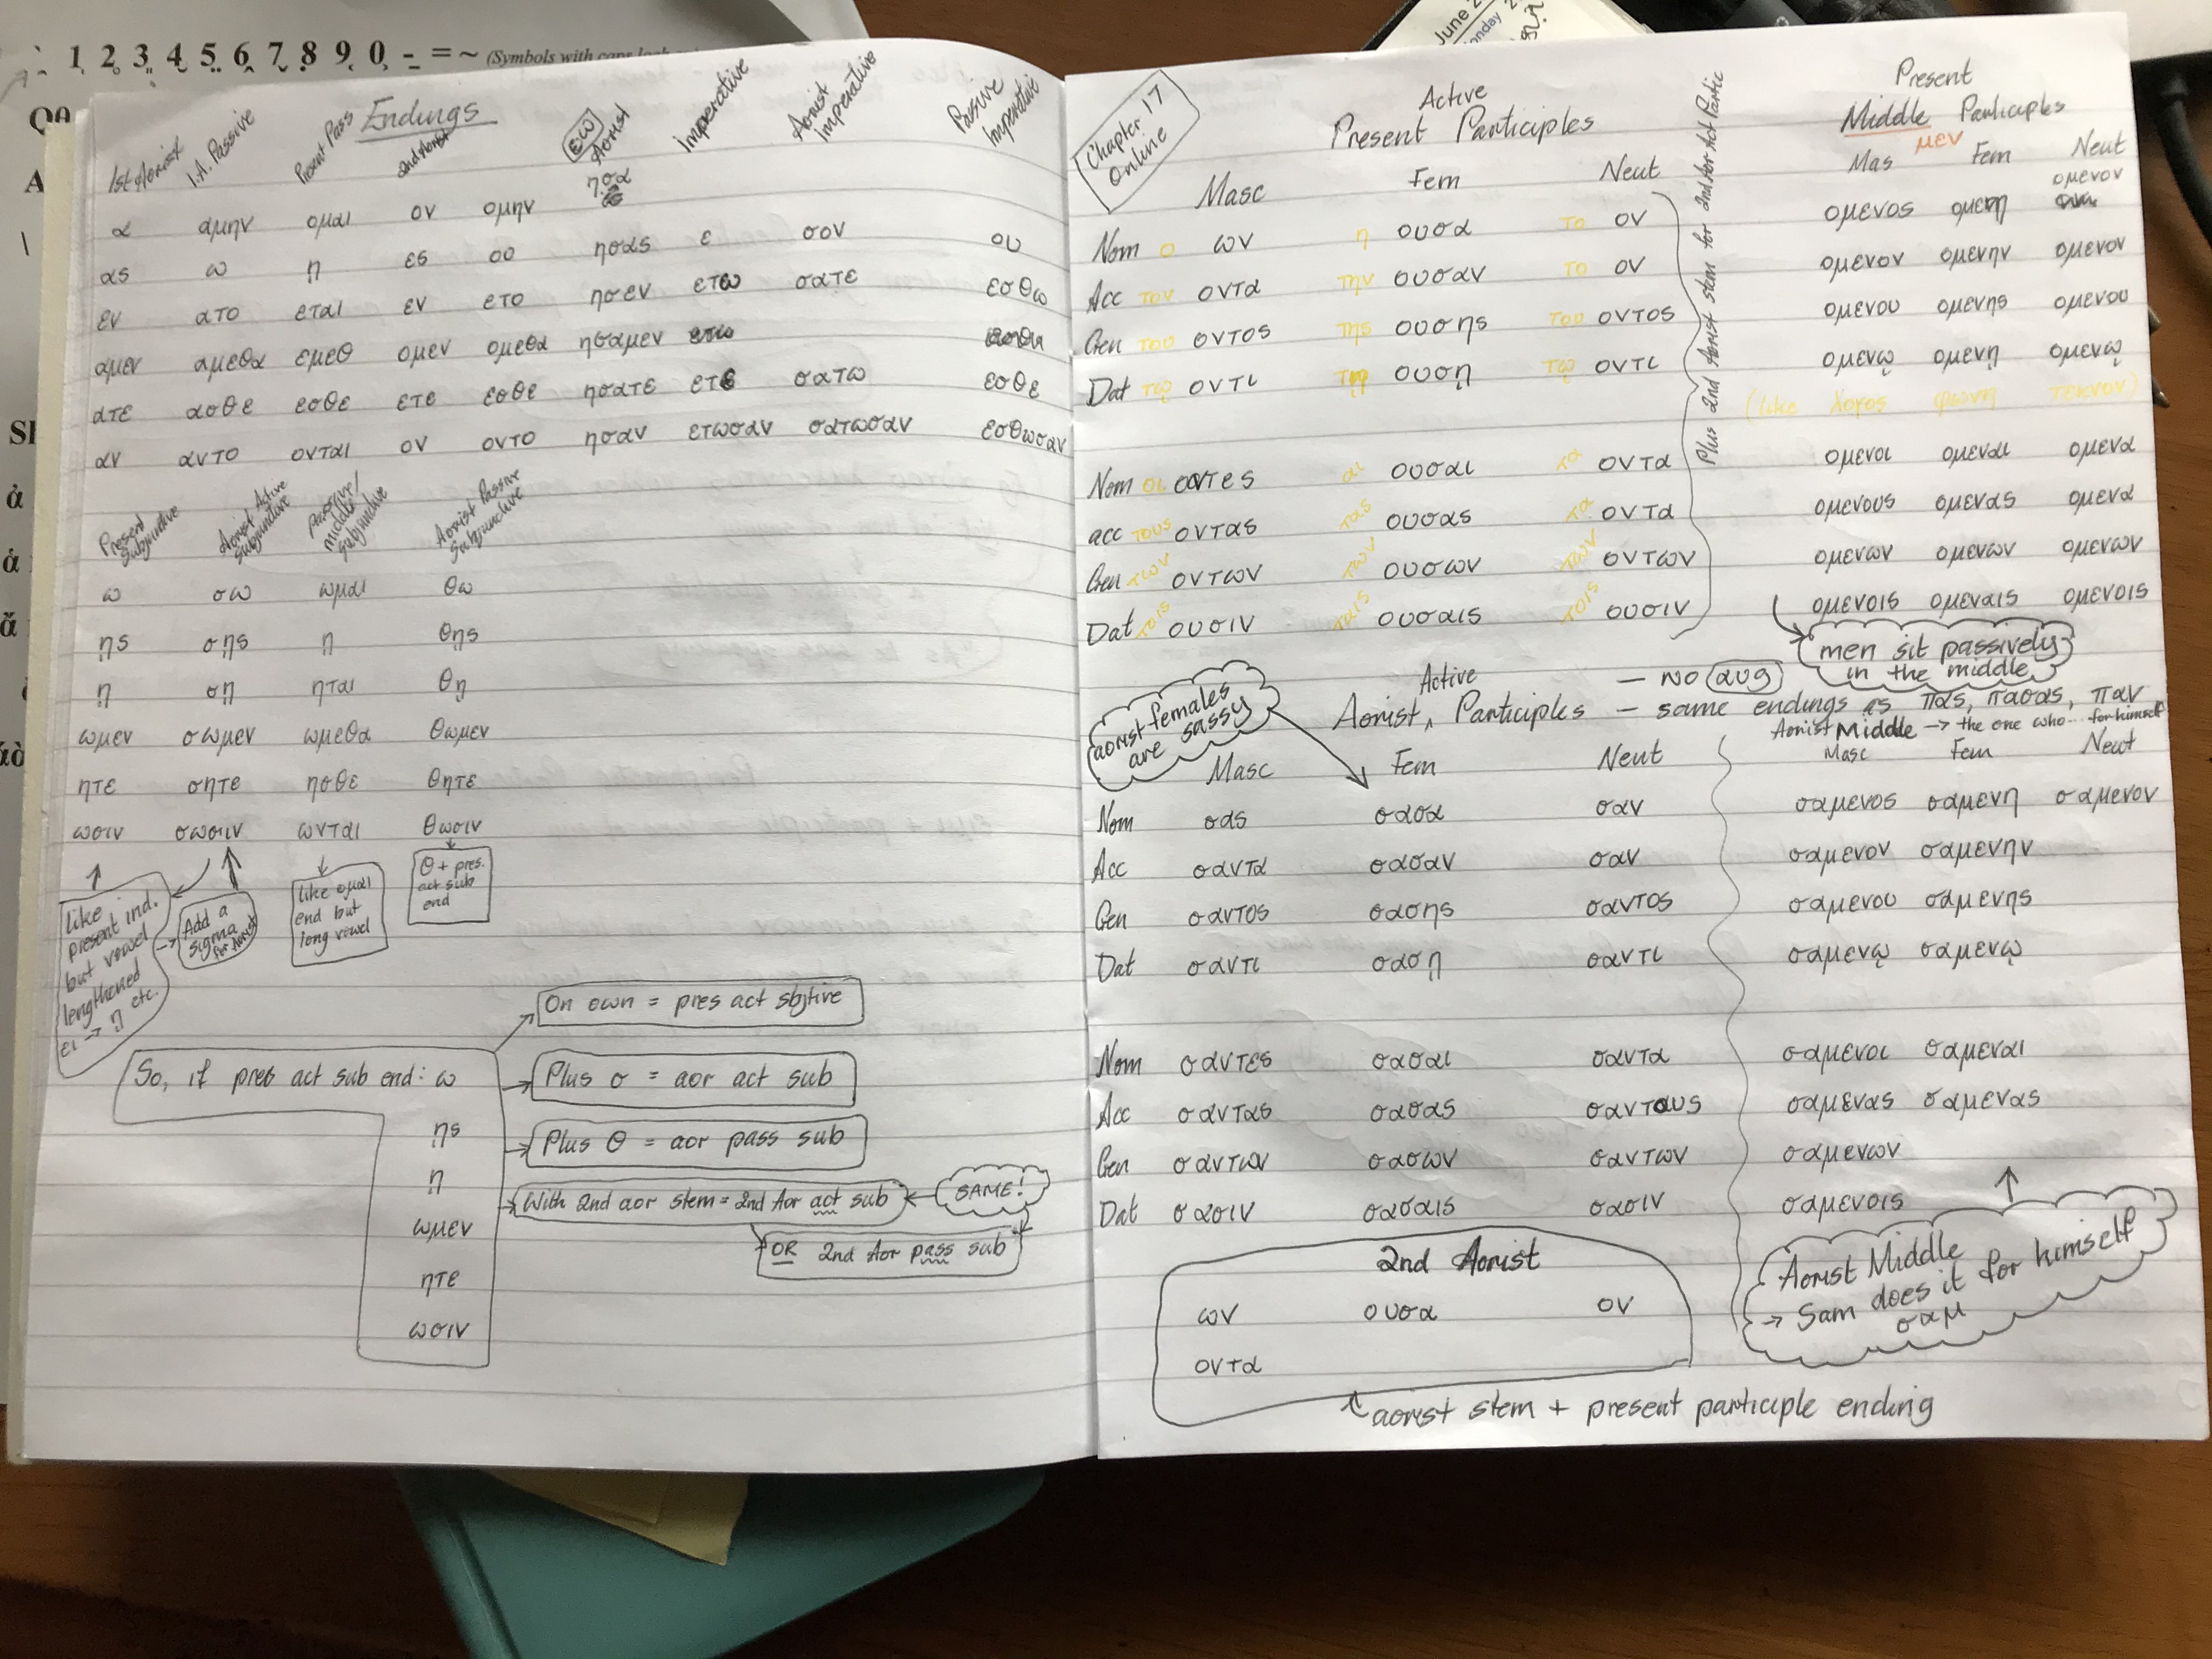 1 2 3 4 5 6 7 8 9 0 - = ~ (Symbols with caps lock
Endings
1st Aorist I.A. Passive Present Pass 2nd Aorist εω Aorist Imperative Aorist Imperative Passive Imperative
α αμην ομαι ον ομην ησα
ας ω η ες ου ησας ε σον ου
εν ατο εται εν ετο ησεν ετω σατε εσθω
αμεν αμεθα εμεθ ομεν ομεθα ησαμεν
ατε ασθε εσθε ετε εσθε ησατε ετε σατω εσθε
αν αντο ονται ον οντο ησαν ετωσαν σατωσαν εσθωσαν
Present Subjunctive Aorist Active Subjunctive Passive/ middle Subjunctive Aorist Passive Subjunctive
ω σω ωμαι θω
ῃς σῃς ῃ θῃς
ῃ σῃ ηται θῃ
ωμεν σωμεν ωμεθα θωμεν
ητε σητε ησθε θητε
ωσιν σωσιν ωνται θωσιν
like present ind. but vowel lengthened ει → ῃ etc.
→ Add a sigma for Aorist
like ομαι end but long vowel
θ + pres. act sub end
So, if pres act sub end: ω
ῃς
ῃ
ωμεν
ητε
ωσιν
On own = pres act sbjtive
Plus σ = aor act sub
Plus θ = aor pass sub
With 2nd aor stem = 2nd Aor act sub
SAME!
OR 2nd Aor pass sub
Chapter 17 Online
Active
Present Participles
Masc Fem Neut
Nom ο ων η ουσα το ον
Acc τον οντα την ουσαν το ον
Gen του οντος της ουσης του οντος
Dat τῳ οντι τῃ ουσῃ τῳ οντι
Nom οι οντες αι ουσαι τα οντα
acc τους οντας τας ουσας τα οντα
Gen των οντων των ουσων των οντων
Dat τοις ουσιν ταις ουσαις τοις ουσιν
Plus 2nd Aorist stem for 2nd Aor Act Partic
Present
Middle Participles
μεν
Mas Fem Neut
ομενος ομενη ομενον
ομενον ομενην ομενον
ομενου ομενης ομενου
ομενῳ ομενῃ ομενῳ
(like λογος φωνη τεκνον)
ομενοι ομεναι ομενα
ομενους ομενας ομενα
ομενων ομενων ομενων
ομενοις ομεναις ομενοις
men sit passively in the middle
aorist females are sassy
Aorist Active Participles
– NO aug
– same endings as πας, πασας, παν
Masc Fem Neut
Nom σας σασα σαν
Acc σαντα σασαν σαν
Gen σαντος σασης σαντος
Dat σαντι σασῃ σαντι
Nom σαντες σασαι σαντα
Acc σαντας σασας σανταυς
Gen σαντων σασων σαντων
Dat σασιν σασαις σασιν
Aorist Middle → the one who... for himself
Masc Fem Neut
σαμενος σαμενη σαμενον
σαμενον σαμενην
σαμενου σαμενης
σαμενῳ σαμενῳ
σαμενοι σαμεναι
σαμενας σαμενας
σαμενων
σαμενοις
Aorist Middle
→ Sam does it for himself
σαμ
2nd Aorist
ων ουσα ον
οντα
aorist stem + present participle ending